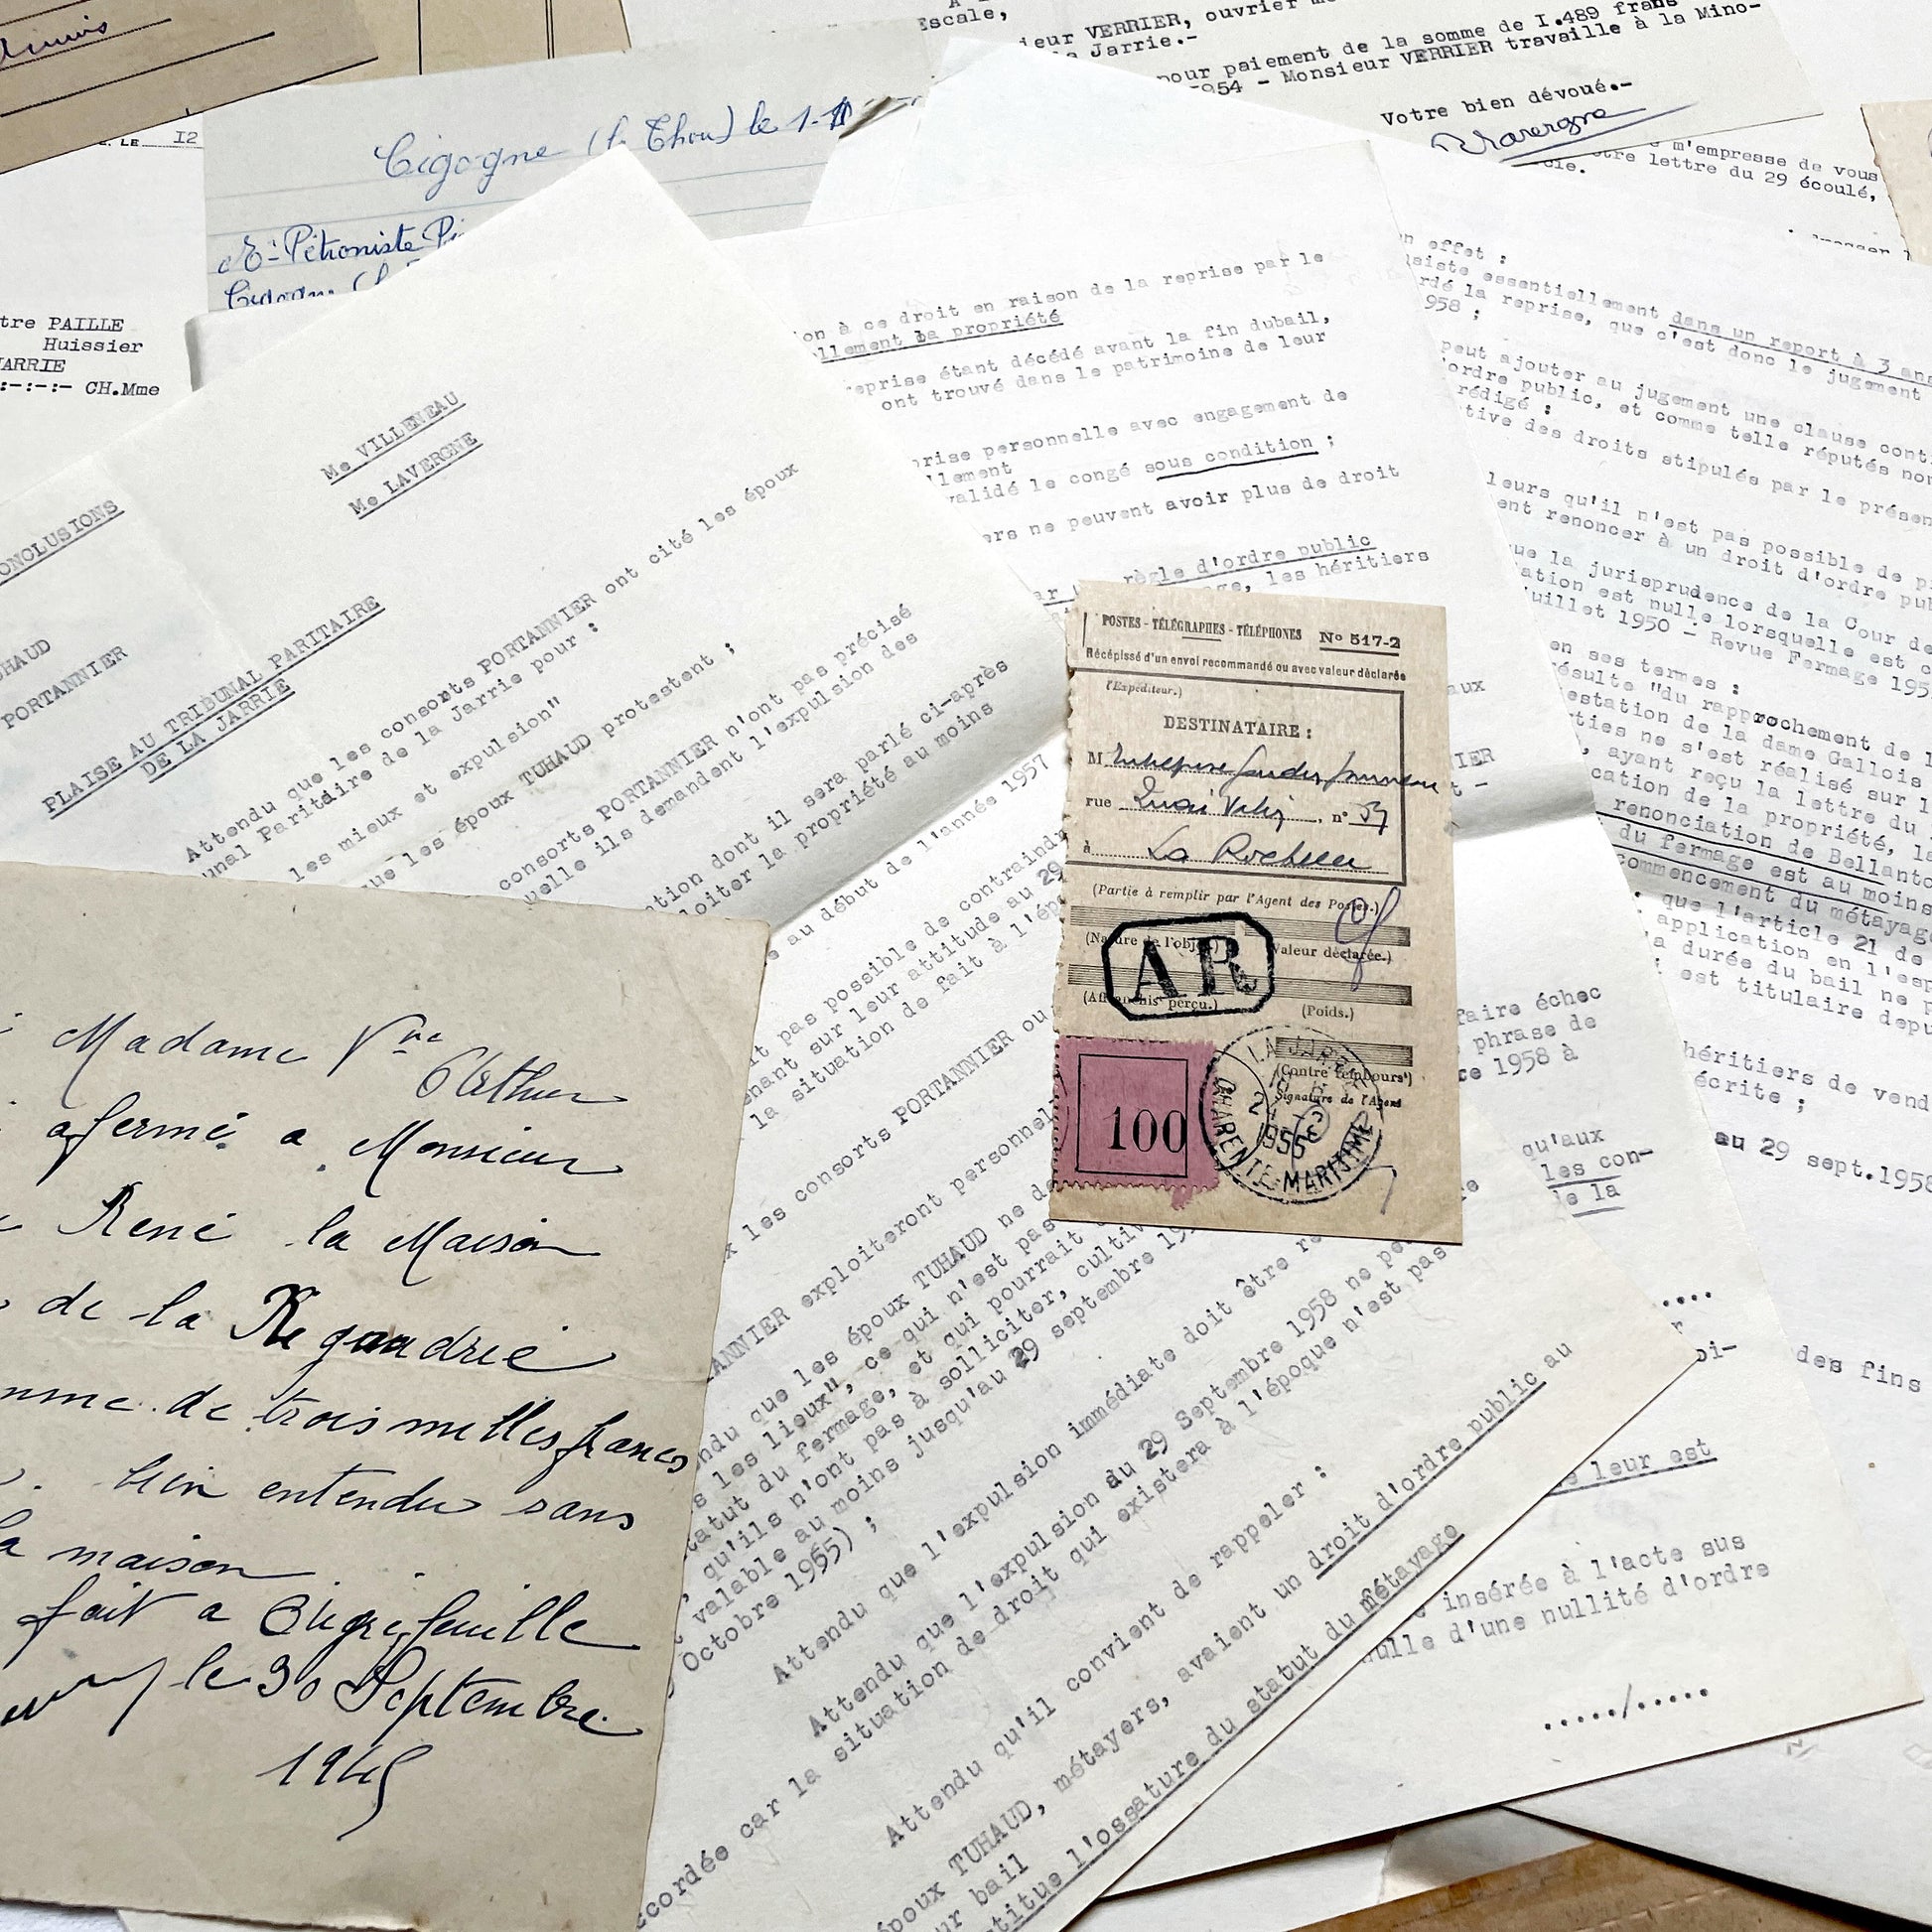 Escale,
ieur VERRIER, ouvrier
a Jarrie.-
pour paiement de la somme de I.489 frans
1954 - Monsieur VERRIER travaille à la Mino-
Votre bien dévoué.-
Lavergne
m'empresse de vous
otre lettre du 29 écoulé,
LE 12
Cigogne (le Thou) le 1-11
Pétroniste
Cigogne
tre PAILLE
Huissier
JARRIE
:-:-:- CH.Mme
Me VILLENEAU
Me LAVERGNE
ONCLUSIONS
UHAUD
PORTANNIER
PLAISE AU TRIBUNAL PARITAIRE
DE LA JARRIE
Attendu que les consorts PORTANNIER ont cité les époux
unal Paritaire de la Jarrie pour :
les mieux et expulsion"
que les époux TUHAUD protestent ;
consorts PORTANNIER n'ont pas précisé
quelle ils demandent l'expulsion des
ntion dont il sera parlé ci-après
loiter la propriété au moins
e au début de l'année 1957
it pas possible de contraindre
enant sur leur attitude au 29
la situation de fait à l'épo
x les consorts PORTANNIER ou
ANNIER exploiteront personnel
endu que les époux TUHAUD ne de
s les lieux", ce qui n'est pas
tatut du fermage, et qui pourrait
, qu'ils n'ont pas à solliciter, cultiv
t valable au moins jusqu'au 29 septembre 19
Octobre 1965) ;
Attendu que l'expulsion immédiate doit être re
Attendu que l'expulsion au 29 Septembre 1958 ne pe
ccordée car la situation de droit qui existera à l'époque n'est pas
Attendu qu'il convient de rappeler :
époux TUHAUD, métayers, avaient un droit d'ordre public au
ur bail
titue l'ossature du statut du métayage
on à ce droit en raison de la reprise par le
llement la propriété
eprise étant décédé avant la fin dubail,
ont trouvé dans le patrimoine de leur
rise personnelle avec engagement de
llement
validé le congé sous condition ;
ers ne peuvent avoir plus de droit
règle d'ordre public
age, les héritiers
aux
NIER
t -
faire échec
phrase de
ce 1958 à
qu'aux
les con-
de la
e leur est
insérée à l'acte sus
nulle d'une nullité d'ordre
...../.....
n effet :
siste essentiellement dans un report à 3 ans
rdé la reprise, que c'est donc le jugement
958 ;
peut ajouter au jugement une clause cont
'ordre public, et comme telle réputés non
rédigé :
tive des droits stipulés par le présen
leurs qu'il n'est pas possible de p
ent renoncer à un droit d'ordre pub
ue la jurisprudence de la Cour de
ation est nulle lorsquelle est c
uillet 1950 - Revue Fermage 195
en ses termes :
ésulte "du rapprochement de l
estation de la dame Gallois
rties ne s'est réalisé sur l
, ayant reçu la lettre du
cation de la propriété, la
renonciation de Bellanto
du fermage est au moins
commencement du métayage
que l'article 21 de
application en l'esp
a durée du bail ne p
est titulaire depu
héritiers de vend
écrite ;
au 29 sept.1958
des fins
POSTES - TÉLÉGRAPHES - TÉLÉPHONES No 517-2
Récépissé d'un envoi recommandé ou avec valeur déclarée
l'Expéditeur.)
DESTINATAIRE :
M Entreprise
rue Quai Valin, n° 37
à La Rochelle
(Partie à remplir par l'Agent des Postes.)
(Nature de l'objet) Valeur déclarée.)
AR
(Affranchis perçu.) (Poids.)
(Contre rembours')
Signature de l'Agent
100
LA JARRIE
CHARENTE-MARITIME
Madame Vve
Arthur
afermé a Monsieur
René la Maison
de la Regaudrie
mme de trois milles francs
bien entendu sans
la maison
fait a Aigrefeuille
le 30 Septembre
1945